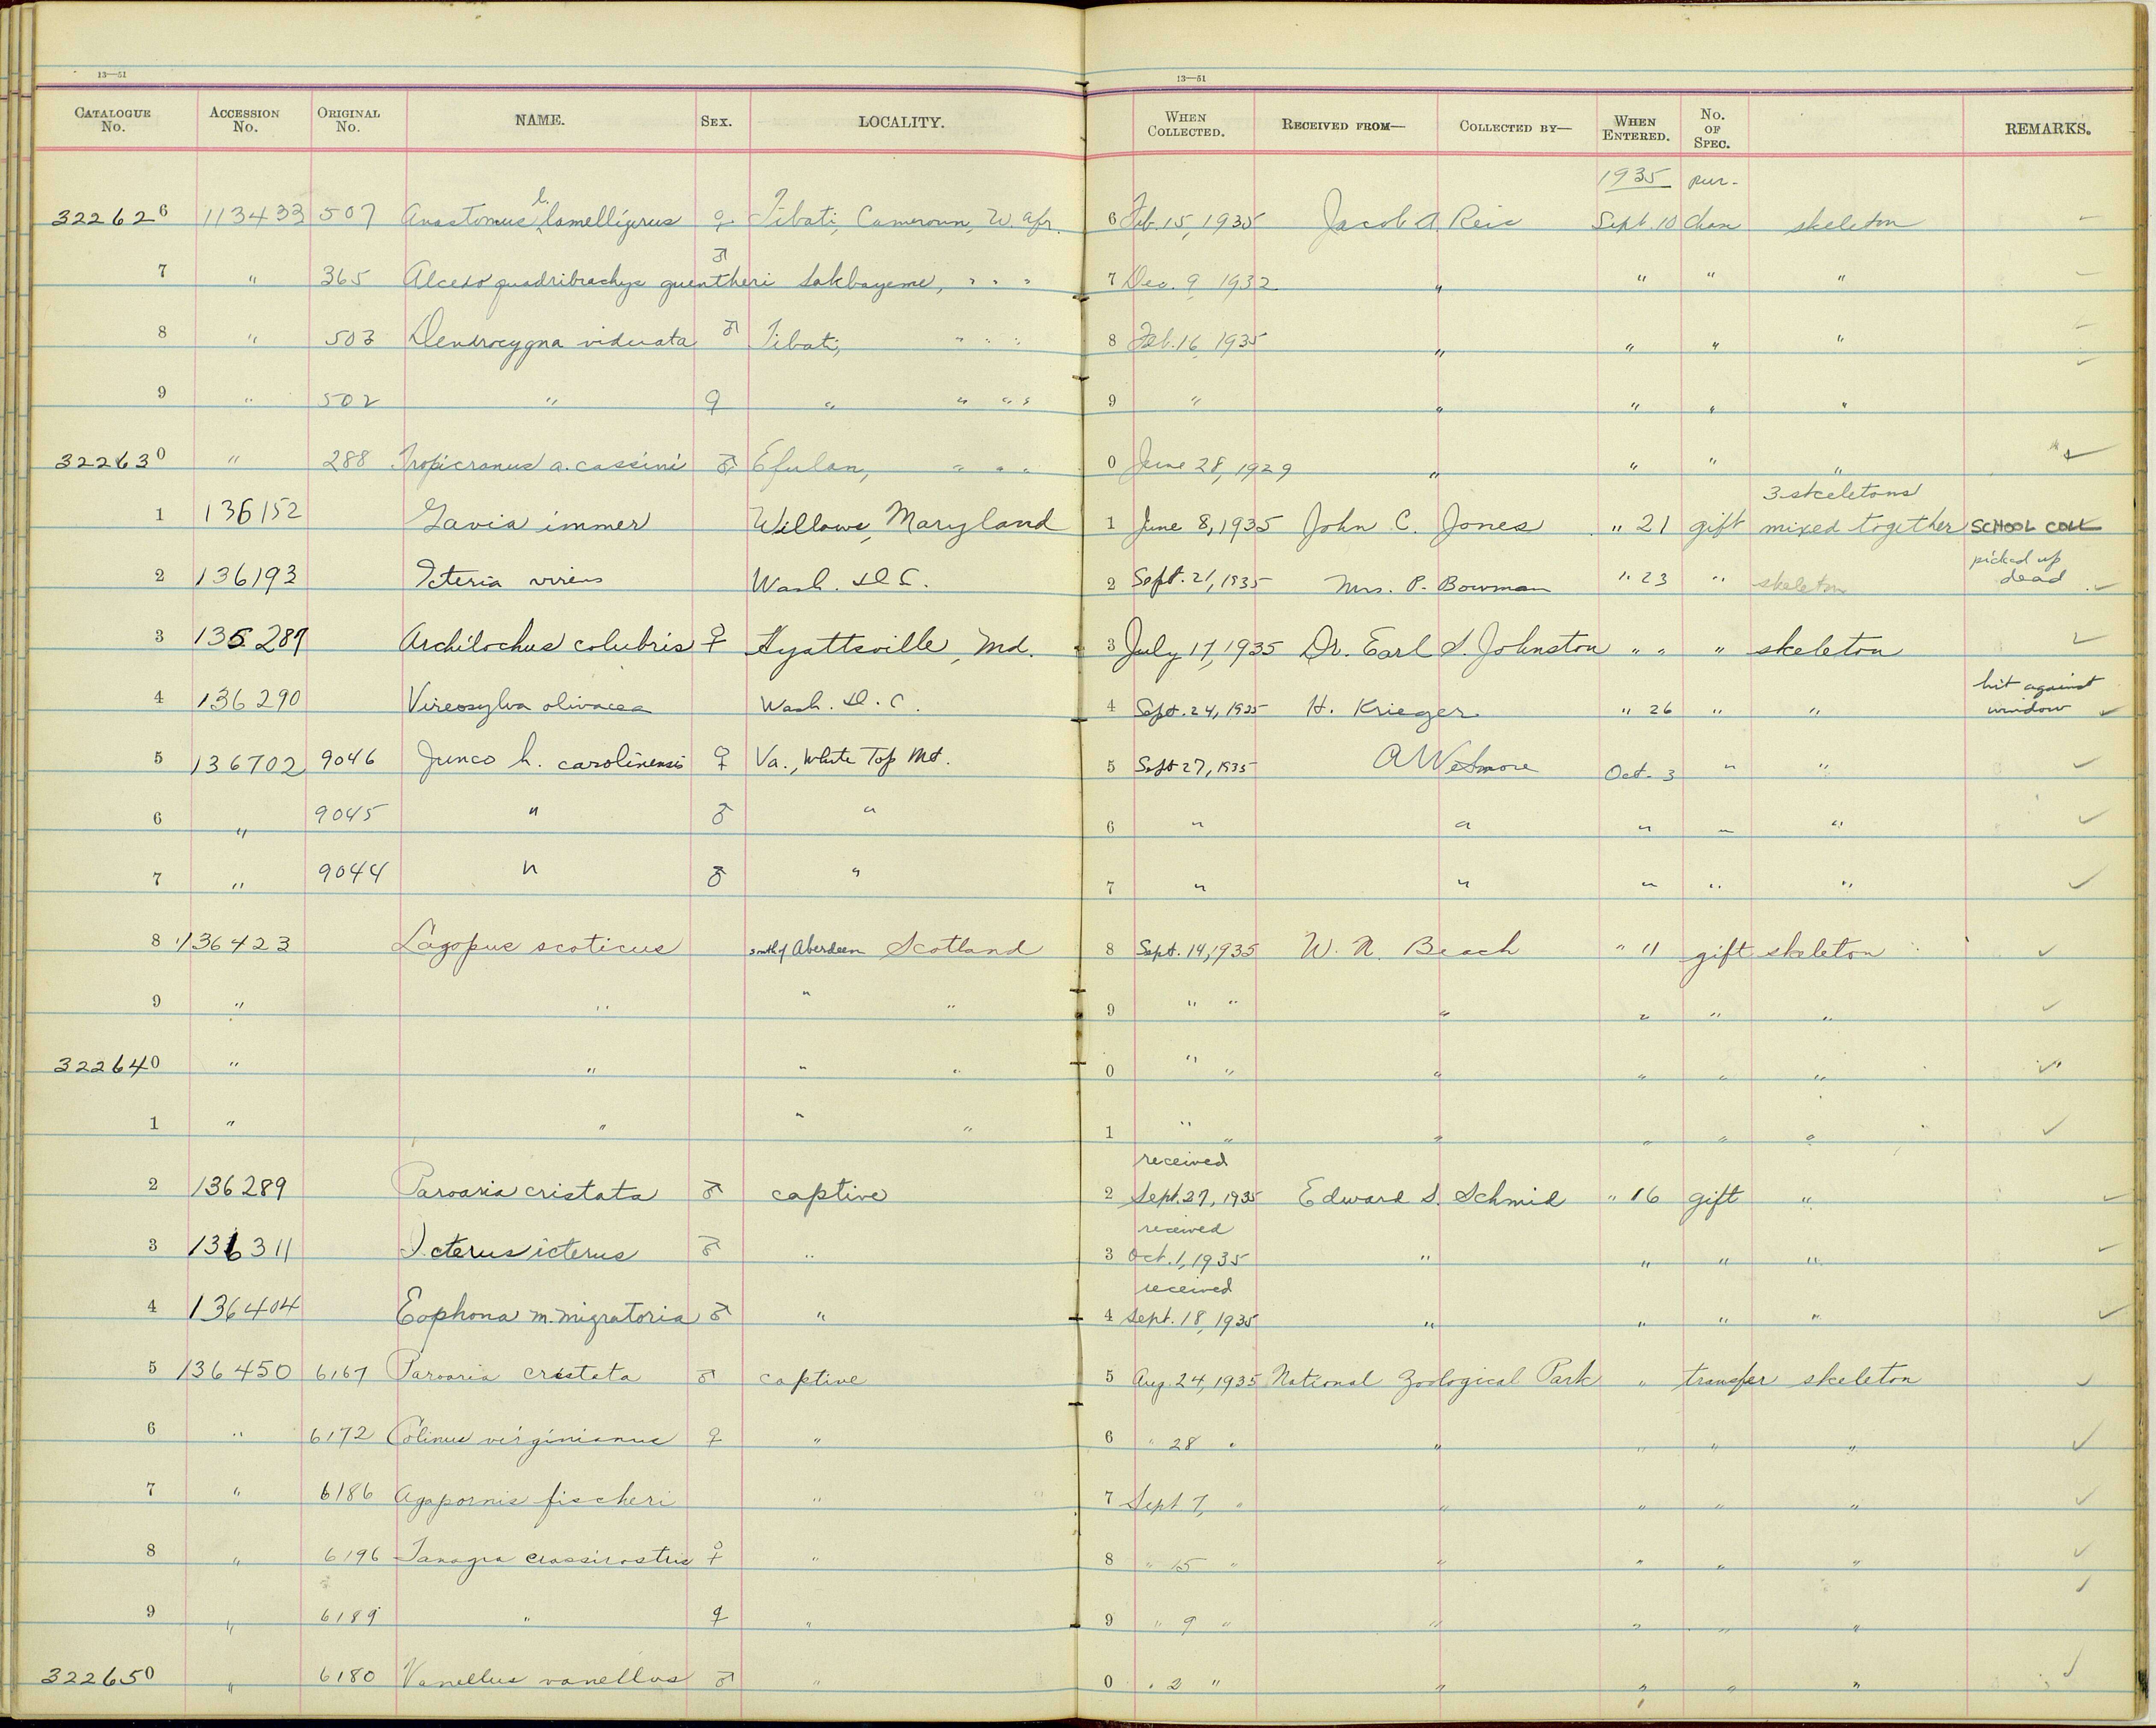 13—51 13—51
CATALOGUE No. ACCESSION No. ORIGINAL No. NAME. SEX. LOCALITY. WHEN COLLECTED. RECEIVED FROM— COLLECTED BY— WHEN ENTERED. No. OF SPEC. REMARKS.
1935 pur-
322626 113433 507 Anastomus l. lamelligerus ♀ Tibati, Cameroun, W. Afr. 6 Feb. 15, 1935 Jacob A. Reis Sept. 10 chase skeleton
7 " 365 Alcedo quadribrachys guentheri ♂ Sakbayeme, " " " 7 Dec. 9 1932 " " " "
8 " 503 Dendrocygna viduata ♂ Tibati, " " " 8 Feb. 16, 1935 " " " "
9 " 502 " ♀ " " " " 9 " " " " "
322630 " 288 Tropicranus a. cassini ♂ Efulan, " " " 0 June 28, 1929 " " " "
3 skeletons
1 136152 Gavia immer Willows, Maryland 1 June 8, 1935 John C. Jones " 21 gift mixed together SCHOOL COLL
picked up
2 136193 Icteria virens Wash. D.C. 2 Sept. 21, 1935 Mrs. P. Bowman " 23 " skeleton dead
3 135287 Archilochus colubris ♀ Hyattsville, Md. 3 July 17, 1935 Dr. Earl S. Johnston " " " skeleton
hit against
4 136290 Vireosylva olivacea Wash. D.C. 4 Sept. 24, 1935 H. Krieger " 26 " " window
5 136702 9046 Junco h. carolinensis ♀ Va., White Top Mt. 5 Sept 27, 1935 A Wetmore Oct. 3 " "
6 " 9045 " ♂ " 6 " " " " "
7 " 9044 " ♂ " 7 " " " " "
8 136423 Lagopus scoticus south of Aberdeen Scotland 8 Sept. 14, 1935 W. N. Beach " 11 gift skeleton
9 " " " " 9 " " " " " "
322640 " " " " 0 " " " " " "
1 " " " " 1 " " " " " "
received
2 136289 Paroaria cristata ♂ captive 2 Sept. 27, 1935 Edward S. Schmid " 16 gift "
received
3 136311 Icterus icterus ♂ " 3 Oct. 1, 1935 " " " "
received
4 136404 Eophona m. migratoria ♂ " 4 Sept. 18, 1935 " " " "
5 136450 6167 Paroaria cristata ♂ captive 5 Aug. 24, 1935 National Zoological Park " transfer skeleton
6 " 6172 Colinus virginianus ♀ " 6 " 28 " " " " "
7 " 6186 Agapornis fischeri " 7 Sept 7, " " " " "
8 " 6196 Tanagra crassirostris ♀ " 8 " 15 " " " " "
9 " 6189 " ♀ " 9 " 9 " " " " "
322650 " 6180 Vanellus vanellus ♂ " 0 " 2 " " " " "